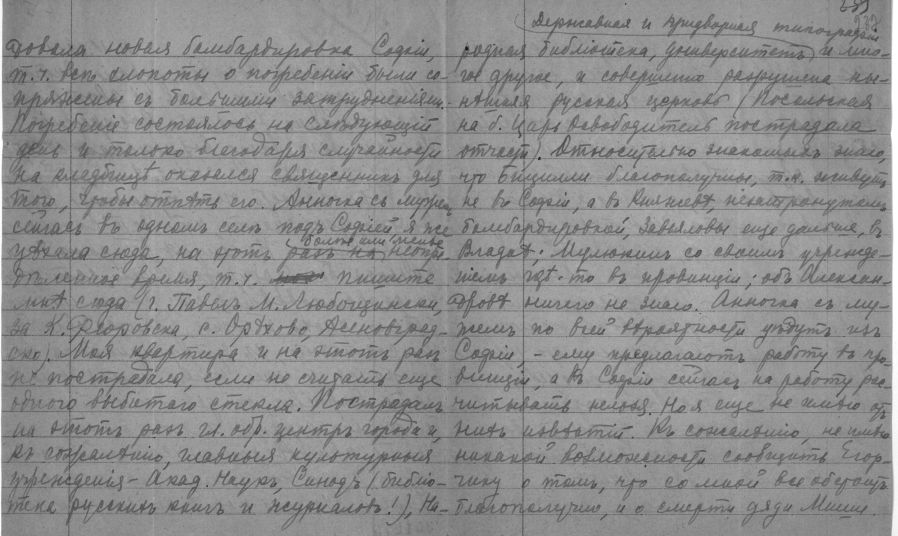 довала новая бомбардировка Софіи,
т. ч. всѣ хлопоты о погребеніи были со-
пряжены съ большими затрудненіями.
Погребеніе состоялось на слѣдующій
день и только благодаря случайности
на кладбищѣ оказался священникъ для
того, чтобы отпѣть его. Анночка съ мужемъ
сейчасъ въ одномъ селѣ подъ Софіей, я же
уѣхала сюда, на этотъ разъ на неопре-
болѣе или менѣе
дѣленное время, т. ч. пишите
мнѣ сюда (г. Павелъ М. Любощинскій,
за К. Егоровска, с. Орѣхово, Ясновград-
ско). Моя квартира и на этотъ разъ
не пострадала, если не считать еще
одного выбитаго стекла. Пострадалъ
на этотъ разъ гл. обр. центръ города и,
къ сожалѣнію, главныя культурныя
учрежденія - Акад. Наукъ, Синодъ (библіо-
тека русскихъ книгъ и журналовъ!), На-
Державная и придворная типографіи
родная библіотека, университетъ и мно-
гое другое, и совершенно разрушена ны-
нѣшняя русская церковь (Посольская
на б. Царь Освободитель пострадала
отчасти). Относительно знакомыхъ знаю,
что Бицилли благополучны, т. к. живутъ
не въ Софіи, а въ Княжевѣ, незатронутомъ
бомбардировкой, Завьяловы еще дальше, въ
Владаѣ; Мулюкинъ со своимъ учрежде-
ніемъ гдѣ-то въ провинціи; объ Алексан-
дровѣ ничего не знаю. Анночка съ му-
жемъ по всей вѣроятности уѣдутъ изъ
Софіи - ему предлагаютъ работу въ про-
винціи, а въ Софіи сейчасъ на работу рас-
читывать нельзя. Но я еще не имѣю отъ
нихъ извѣстій. Къ сожалѣнію, не имѣю
никакой возможности сообщить Егор-
чику о томъ, что со мной все обстоитъ
благополучно, и о смерти дяди Миши.